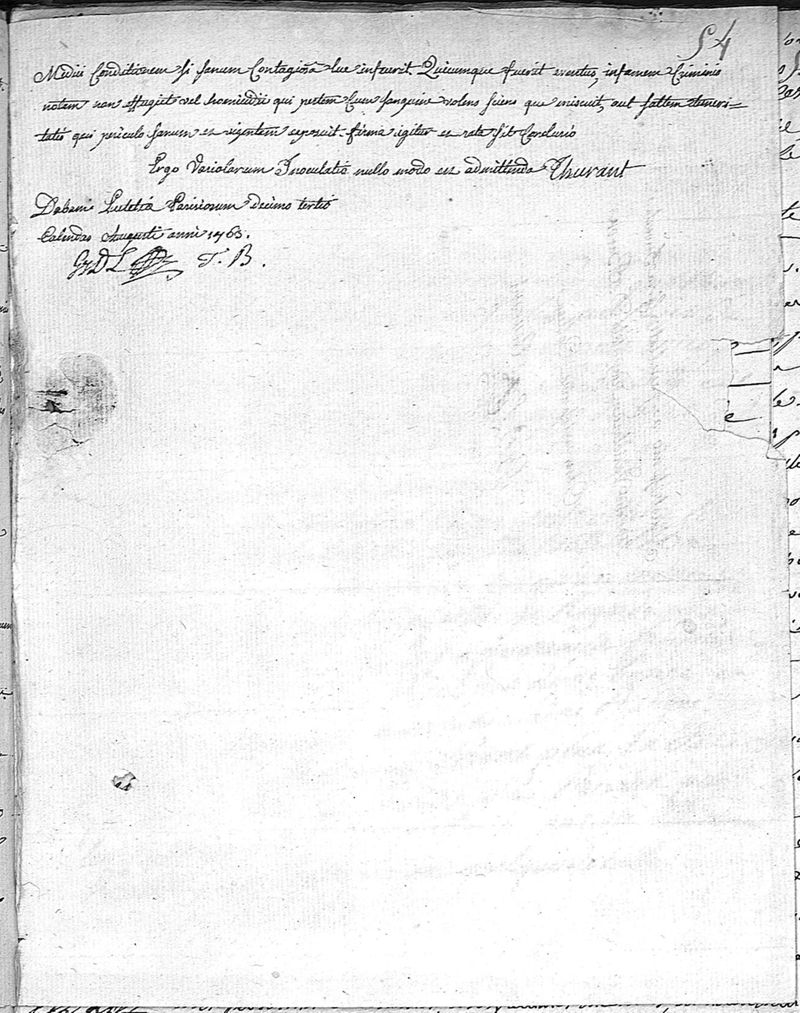 54
Medici Conditionem si sanum Contagiosâ lue infecerit. Quicumque fuerit eventus, infamem Criminis
notam non effugiet vel homicidii qui pestem Cum sanguine volens sciens que miscuit, aut saltem temeri=
tatis qui periculo sanum et vigentem exposuit. firma igitur et rata sit Conclusio
Ergo Variolarum Inoculatio nullo modo est admittenda Thurant
Dabam Lutetiæ Parisiorum decimo tertio
Calendas Augusti anni 1763.
T. B.